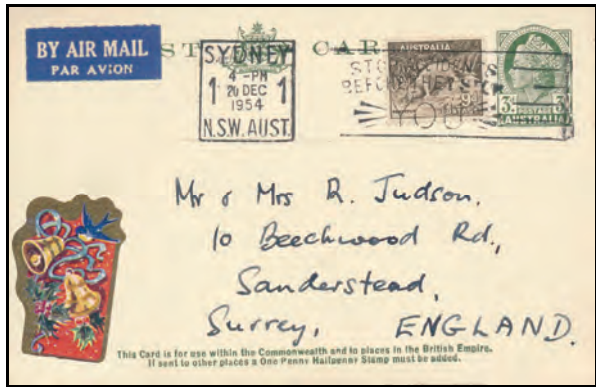 BY AIR MAIL
PAR AVION
SYDNEY
4 - PM
20 DEC
1 1954 1
N.S.W. AUST.
AUSTRALIA
STOP ACCIDENTS
BEFORE THEY STOP
YOU
3D POSTAGE 3D
AUSTRALIA
Mr & Mrs R. Judson.
10 Beechwood Rd.,
Sanderstead,
Surrey, ENGLAND.
This Card is for use within the Commonwealth and to places in the British Empire.
If sent to other places a One Penny Halfpenny Stamp must be added.